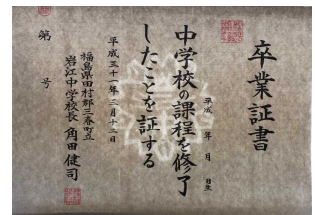 卒業証書
平成 年 月 日生
中学校の課程を修了
したことを証する
平成三十一年三月十三日
福島県田村郡三春町立
岩江中学校長 角田健司
第 号